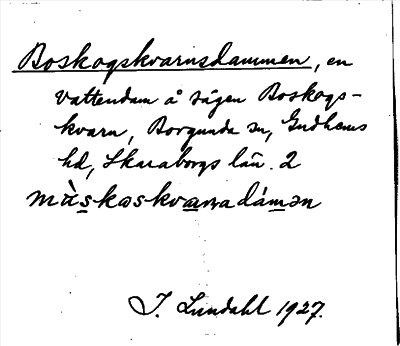 Boskogskvarnsdammen, en
vattendam å sågen Boskogs-
kvarn, Borgunda sn, Gudhems
hd, Skaraborgs län. 2
mùskoskvaṇadámən
I. Lundahl 1927.